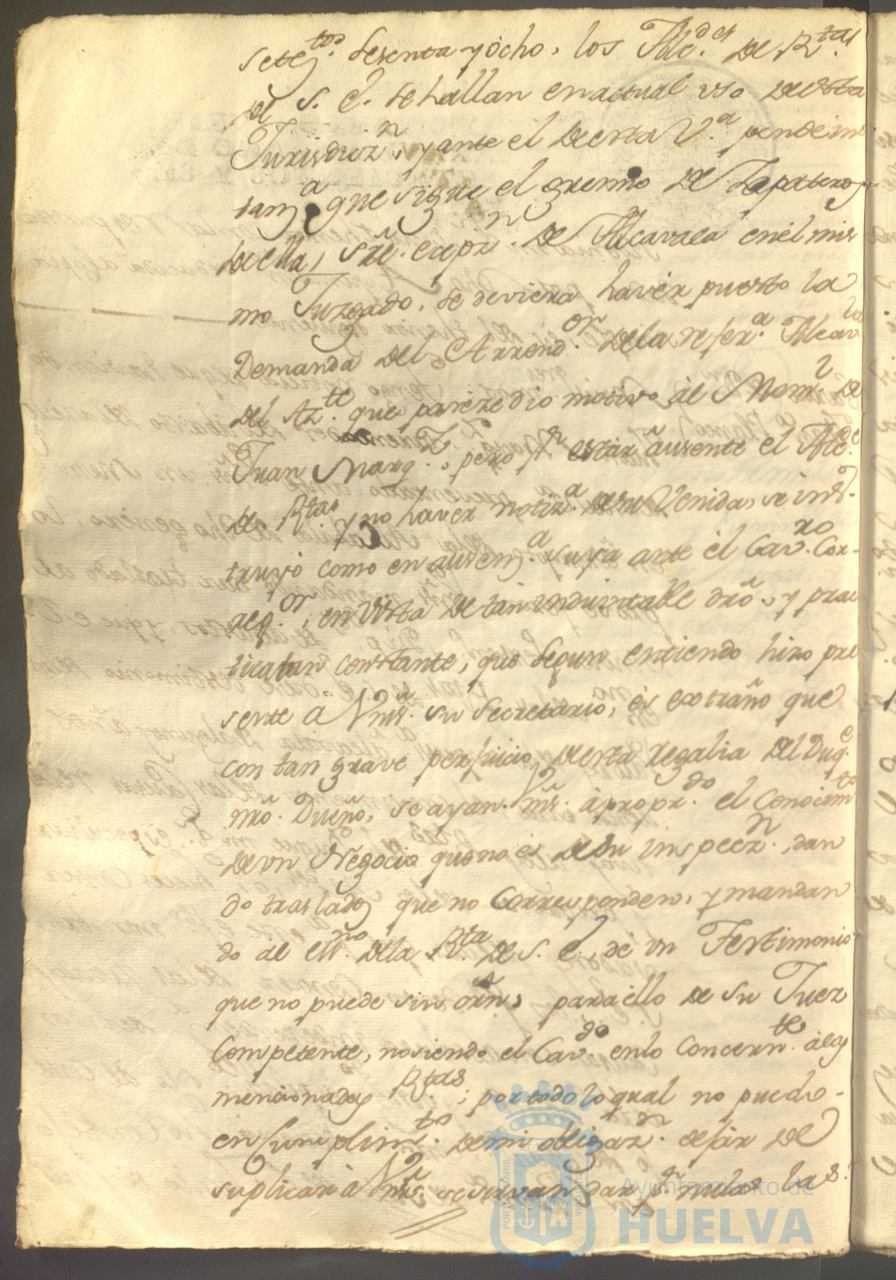 setez.tos sesenta y ocho, los Alc.des de R.tas
de S. E. se hallan en actual uso de esta
Jurisdiz.n, y ante el de esta V.a pende ins
tanz.a que sigue el gremio de Zapateros
de ella, sre. exempz.n de Alcavala en el mis
mo Juzgado, se deviera haver puesto la
Demanda del Arrend.or de la refer.a Alcav.la
del Az.te que pareze dio motivo al Nom. de
Juan Marq.z, pero pr. estar ausente el Alc.de
de R.tas y no haver notiz.a de su Venida, se ins
truyó como en ausenz.a suya ante el Cav.ro Cor-
reg.or; en Vista de tan indubitable dro., y prac
tica tan constante, que segun entiendo hizo pre
sente a Vms. su Secretario, es extraño que
con tan grave perjuicio de esta regalia del Duq.e
mro. Dueño, se ayan Vms. apropr.do el Conocim.to
de un Negocio que no es de su inspecz.n, dan
do traslados que no Corresponden, y mandan
do al es.no de la R.ta de S. E. de un Testimonio
que no puede sin orn. para ello de su Juez
Competente, no siendo el Cav.do en lo Concern.te a las
mencionadas R.tas; por todo lo qual no puedo
en Cumplim.to de mi obligaz.n dejar de
suplicar a Vms. se sirvan dar pr. nulas las
Ayuntamiento de
HUELVA